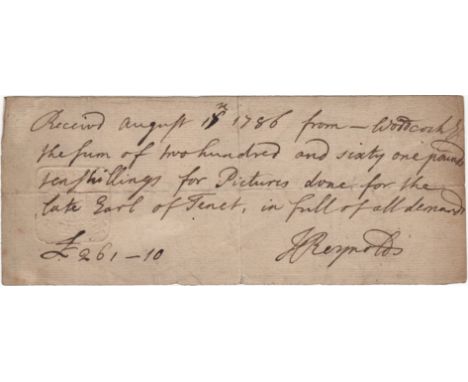 Receivd August 1786 from — Woodcock
the sum of two hundred and sixty one pound
ten shillings for Pictures done for the
late Earl of Tenet, in full of all demands
£261–10
JReynolds